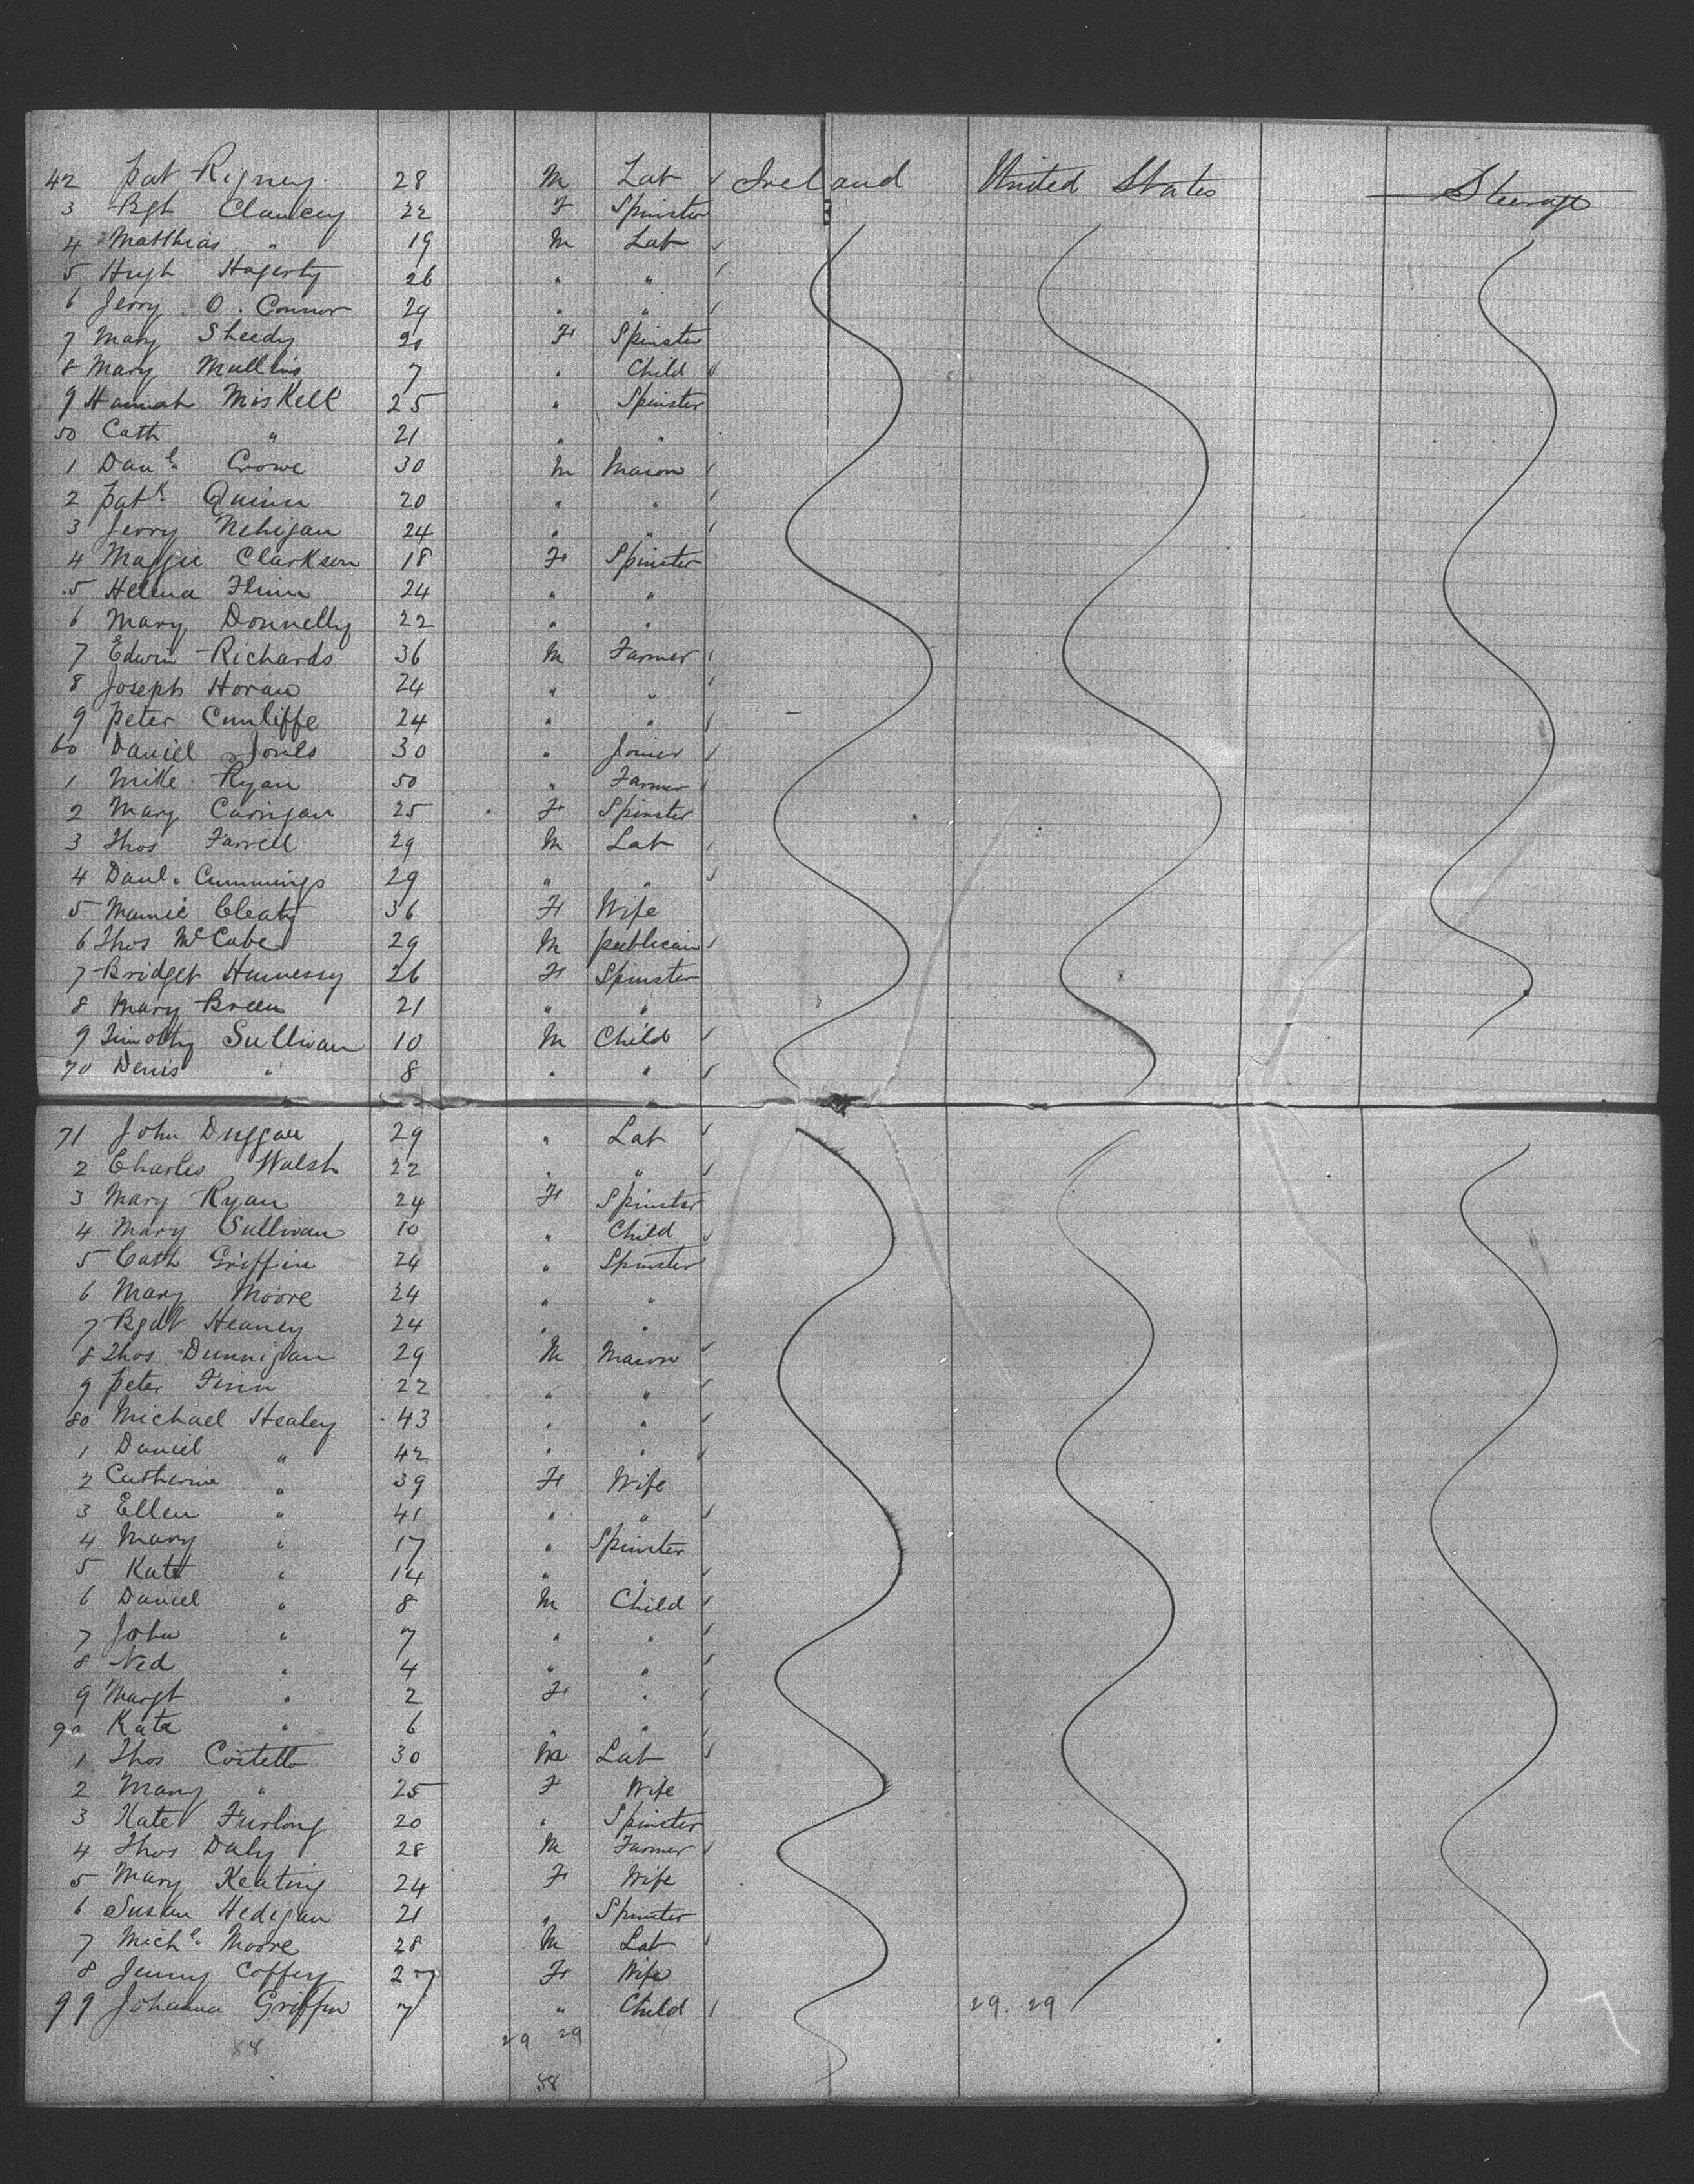 42 Pat Rigney 28 M Lab Ireland United States Steerage
3 Bgt Clancey 22 F Spinster
4 Matthias " 19 M Lab
5 Hugh Hagerty 26 " "
6 Jerry O. Connor 29 " "
7 Mary Sheedy 20 F Spinster
8 Mary Mullins 7 " Child
9 Hannah Miskell 25 " Spinster
50 Cath " 21 " "
1 Danl. Crowe 30 M Mason
2 Patk. Quinn 20 " "
3 Jerry Nehigan 24 " "
4 Maggie Clarkson 18 F Spinster
5 Helena Flinn 24 " "
6 Mary Donnelly 22 " "
7 Edwin Richards 36 M Farmer
8 Joseph Horan 24 " "
9 Peter Cunliffe 24 " "
60 Daniel Jones 30 " Joiner
1 Mike Ryan 50 " Farmer
2 Mary Carrigan 25 F Spinster
3 Thos Farrell 29 M Lab
4 Danl. Cummings 29 " "
5 Mamie Cleaty 36 F Wife
6 Thos McCabe 29 M publican
7 Bridget Hennessy 26 F Spinster
8 Mary Breen 21 " "
9 Timothy Sullivan 10 M Child
70 Denis " 8 " "
71 John Duggan 29 " Lab
2 Charles Walsh 22 " "
3 Mary Ryan 24 F Spinster
4 Mary Sullivan 10 " Child
5 Cath Griffin 24 " Spinster
6 Mary Moore 24 " "
7 Bgdt Heaney 24 " "
8 Thos Dunnigan 29 M Mason
9 Peter Finn 22 " "
80 Michael Healey 43 " "
1 Daniel " 42 " "
2 Catherine " 39 F Wife
3 Ellen " 41 " "
4 Mary " 17 " Spinster
5 Kate " 14 " "
6 Daniel " 8 M Child
7 John " 7 " "
8 Ned " 4 " "
9 Margt " 2 F "
90 Kate " 6 " "
1 Thos Costello 30 M Lab
2 Mary " 25 F Wife
3 Kate Furlong 20 " Spinster
4 Thos Daly 28 M Farmer
5 Mary Keating 24 F Wife
6 Susan Hedigan 21 " Spinster
7 Michl. Moore 28 M Lab
8 Jenny Coffey 27 F Wife
99 Johanna Griffin 7 " Child 29. 29
88 29 29
58